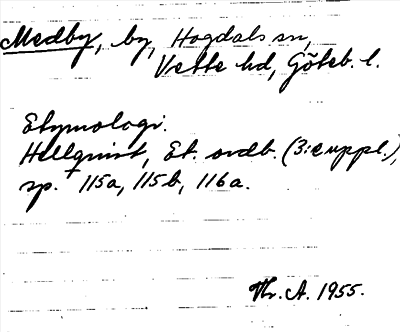 Medby, by, Hogdals sn,
Vette hd, Göteb. l.
Etymologi.
Hellquist, Et. ordb. (3:e uppl.),
sp. 115a, 115b, 116a.
Hr. A. 1955.